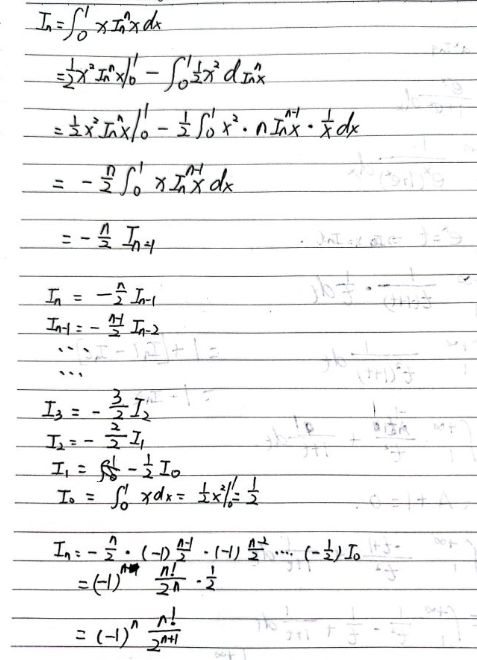 Iₙ = ∫₀¹ x Inⁿx dx
= ½x² Inⁿx |₀¹ − ∫₀¹ ½x² d Inⁿx
= ½x² Inⁿx |₀¹ − ½ ∫₀¹ x² · n Inⁿ⁻¹x · 1/x dx
= − n/2 ∫₀¹ x Inⁿ⁻¹x dx
= − n/2 Iₙ₋₁
Iₙ = − n/2 Iₙ₋₁
Iₙ₋₁ = − (n-1)/2 Iₙ₋₂
...
...
I₃ = − 3/2 I₂
I₂ = − 2/2 I₁
I₁ = − ½ I₀
I₀ = ∫₀¹ x dx = ½x² |₀¹ = ½
Iₙ = − n/2 · (−1) (n-1)/2 · (−1) (n-2)/2 ···· (−½) I₀
= (−1)ⁿ n!/2ⁿ · ½
= (−1)ⁿ n!/2ⁿ⁺¹